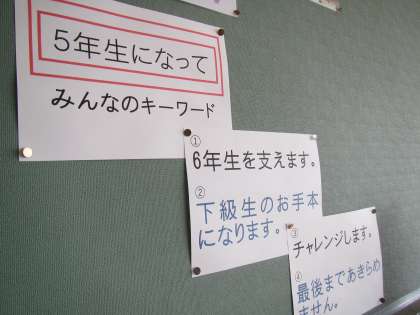 5年生になって
みんなのキーワード
①
6年生を支えます。
②
下級生のお手本
になります。
③
チャレンジします。
④
最後まであきらめ
ません。